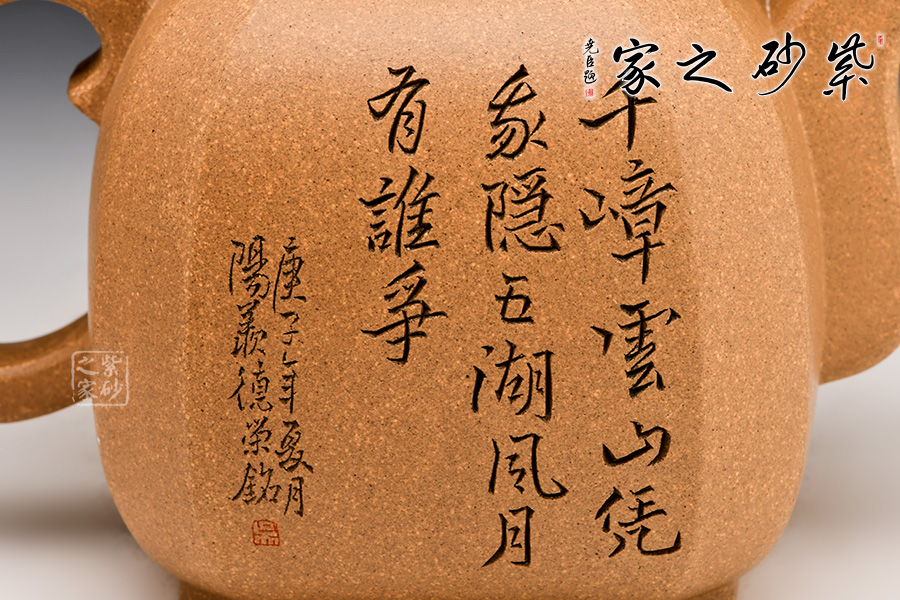 紫砂之家
堯臣題
千嶂雲山凭
我隐五湖風月
有誰爭
庚子年夏月
陽羡德榮銘
紫砂之家